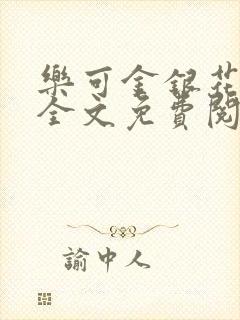 樂可金銀花
全文免費閱
諭中人